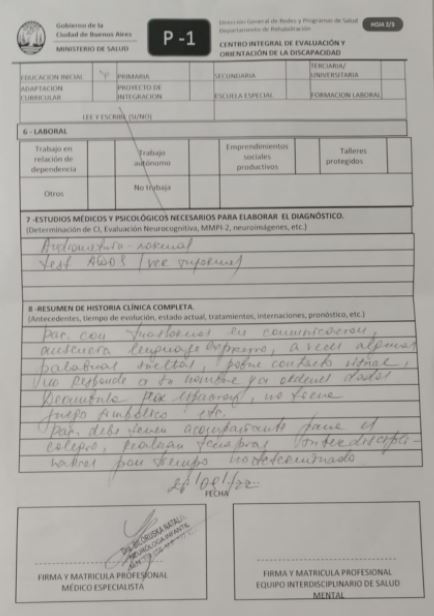 Gobierno de la
Ciudad de Buenos Aires
MINISTERIO DE SALUD
P - 1
Dirección General de Redes y Programas de Salud
Departamento de Rehabilitación
HOJA 2/3
CENTRO INTEGRAL DE EVALUACIÓN Y
ORIENTACIÓN DE LA DISCAPACIDAD
EDUCACION INICIAL
PRIMARIA
SECUNDARIA
TERCIARIA/
UNIVERSITARIA
ADAPTACIÓN
CURRICULAR
PROYECTO DE
INTEGRACIÓN
ESCUELA ESPECIAL
FORMACION LABORAL
LEE Y ESCRIBE (SI/NO)
6 - LABORAL
Trabajo en
relación de
dependencia
Trabajo
autónomo
Emprendimientos
sociales
productivos
Talleres
protegidos
Otros
No trabaja
7 -ESTUDIOS MÉDICOS Y PSICOLÓGICOS NECESARIOS PARA ELABORAR EL DIAGNÓSTICO.
(Determinación de CI, Evaluación Neurocognitiva, MMPI-2, neuroimágenes, etc.)
- normal
test ADOS (ver informe)
8 -RESUMEN DE HISTORIA CLÍNICA COMPLETA.
(Antecedentes, tiempo de evolución, estado actual, tratamientos, internaciones, pronóstico, etc.)
Pac. con trastornos en comunicacion,
ausencia lenguaje expresivo, a veces algunas
palabras sueltas, pobre contacto visual,
no responde a su nombre
por espacios, no tiene
juego simbolico etc.
Pac. debe tener acompañante para el
colegio, terapias interdiscipli-
narias por tiempo
FECHA
NATALIA
NEUROLOGA INFANTIL
FIRMA Y MATRICULA PROFESIONAL
MÉDICO ESPECIALISTA
FIRMA Y MATRICULA PROFESIONAL
EQUIPO INTERDISCIPLINARIO DE SALUD
MENTAL